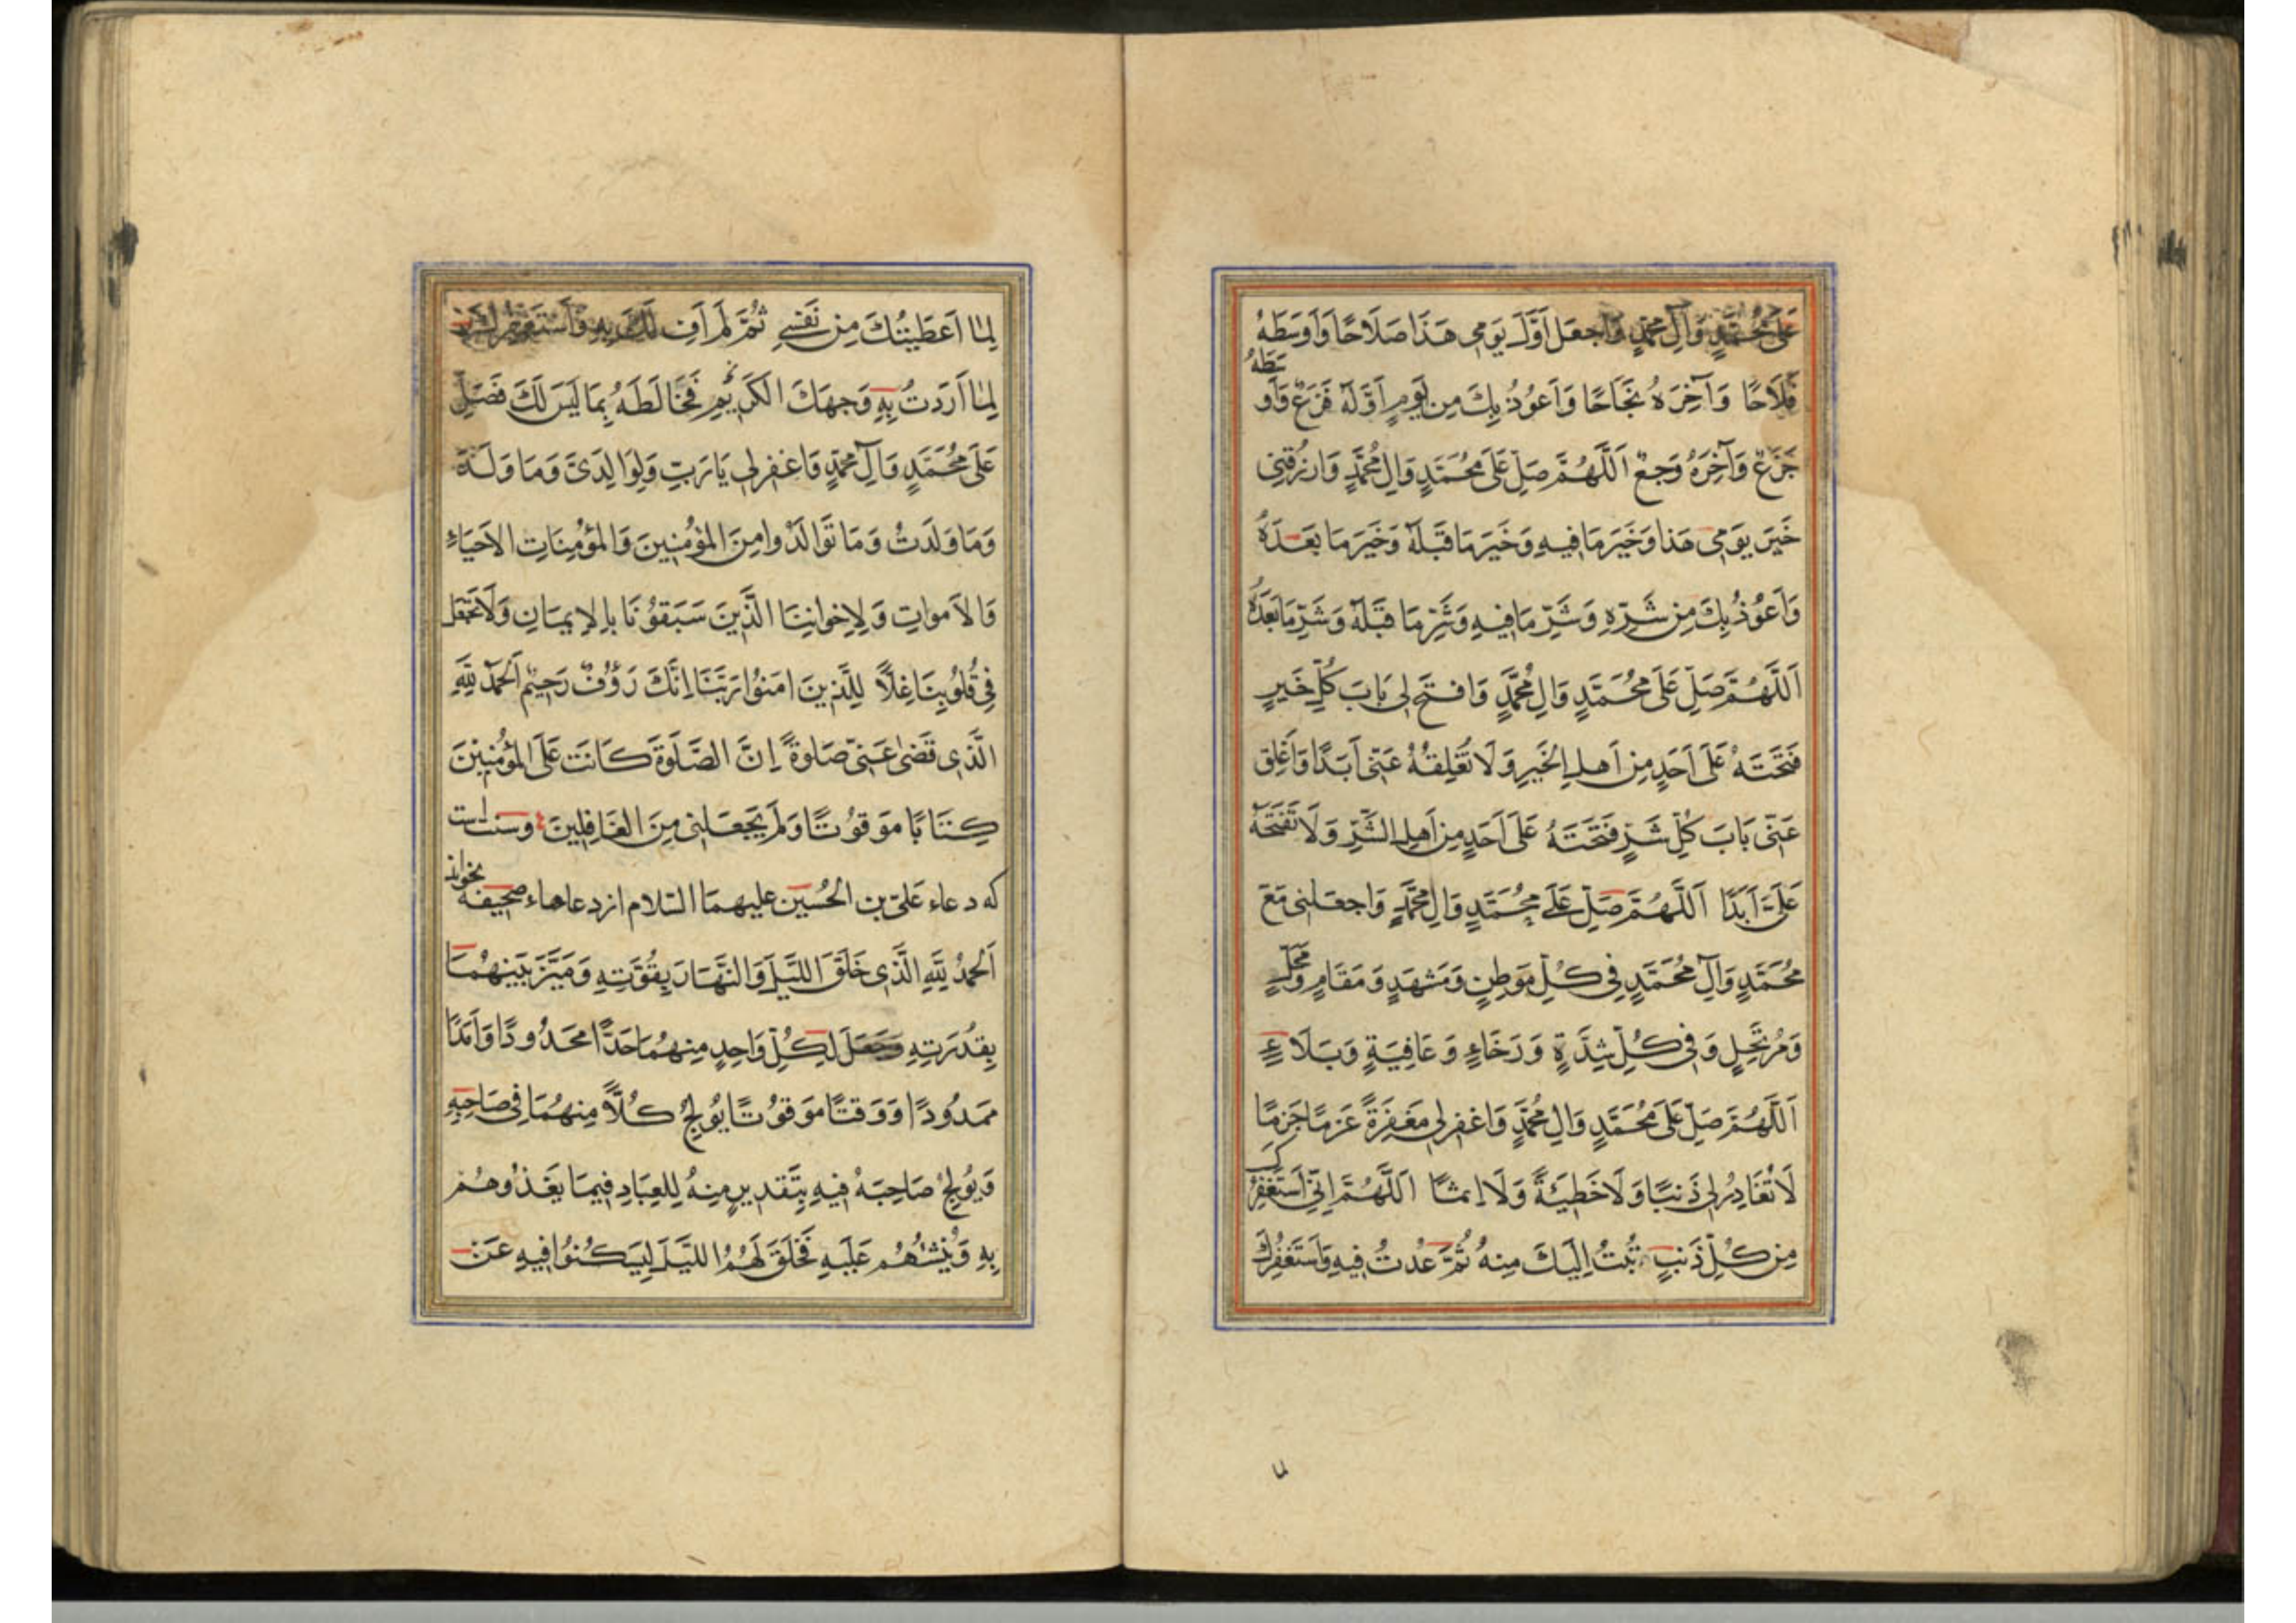 عَلَى مُحَمَّدٍ وَآلِ مُحَمَّدٍ وَاجعَل اَوَّلَ يَومِى هَذَا صَلَاحًا وَاَوسَطَهُ
فَلَاحًا وَآخِرَهُ نَجَاحًا وَاَعوُذُ بِكَ مِن يَومٍ اَوَّلُهُ فَزَعٌ وَاَوسَطَهُ
جَزَعٌ وَآخِرَهُ وَجَعٌ اَللَّهُمَّ صَلِّ عَلَى مُحَمَّدٍ وَالِ مُحَمَّدٍ وَارزُقنِى
خَيرَ يَومِى هَذا وَخَيرَ مَا فِيهِ وَخَيرَ مَا قَبلَهُ وَخَيرَ مَا بَعدَهُ
وَاَعوُذُ بِكَ مِن شَرِّهِ وَشَرِّ مَا فِيهِ وَشَرِّ مَا قَبلَهُ وَشَرِّ مَا بَعدَهُ
اَللَّهُمَّ صَلِّ عَلَى مُحَمَّدٍ وَالِ مُحَمَّدٍ وَافتَح لِى بَابَ كُلِّ خَيرٍ
فَتَحتَهُ عَلَى اَحَدٍ مِن اَهلِ الخَيرِ وَلَا تُغلِقهُ عَنِّى اَبَدًا وَاَغلِق
عَنِّى بَابَ كُلِّ شَرٍّ فَتَحتَهُ عَلَى اَحَدٍ مِن اَهلِ الشَّرِّ وَلَا تَفتَحهُ
عَلَىَّ اَبَدًا اَللَّهُمَّ صَلِّ عَلَى مُحَمَّدٍ وَالِ مُحَمَّدٍ وَاجعَلنِى مَعَ
مُحَمَّدٍ وَآلِ مُحَمَّدٍ فِى كُلِّ مَوطِنٍ وَمَشهَدٍ وَمَقَامٍ وَمَحَلٍّ
وَمُرتَحَلٍ وَفِى كُلِّ شِدَّةٍ وَرَخَاءٍ وَعَافِيَةٍ وَبَلَاءٍ
اَللَّهُمَّ صَلِّ عَلَى مُحَمَّدٍ وَالِ مُحَمَّدٍ وَاغفِر لِى مَغفِرَةً عَزمًا جَزمًا
لَا تُغَادِرُ لِى ذَنبًا وَلَا خَطِيئَةً وَلَا اِثمًا اَللَّهُمَّ اِنِّى اَستَغفِرُكَ
مِن كُلِّ ذَنبٍ تُبتُ اِلَيكَ مِنهُ ثُمَّ عُدتُ فِيهِ وَاَستَغفِرُكَ
لِمَا اَعطَيتُكَ مِن نَفسِى ثُمَّ لَم اَفِ لَكَ بِهِ وَاَستَغفِرُكَ
لِمَا اَرَدتُ بِهِ وَجهَكَ الكَرِيمَ فَخَالَطَهُ بِمَا لَيسَ لَكَ فَصَلِّ
عَلَى مُحَمَّدٍ وَآلِ مُحَمَّدٍ وَاغفِر لِى يَا رَبِّ وَلِوَالِدَىَّ وَمَا وَلَدَ
وَمَا وَلَدَتُ وَمَا تَوَالَدُوا مِنَ المُؤمِنِينَ وَالمُؤمِنَاتِ الاَحيَاءِ
وَالاَموَاتِ وَلِاِخوَانِنَا الَّذِينَ سَبَقوُنَا بِالاِيمَانِ وَلَا تَجعَل
فِى قُلوُبِنَا غِلًّا لِلَّذِينَ امَنوُا رَبَّنَا اِنَّكَ رَؤُفٌ رَحِيمٌ اَلحَمدُ لِلَّهِ
الَّذِى قَضَى عَنِّى صَلوةً اِنَّ الصَّلَوةَ كَانَت عَلَى المُؤمِنِينَ
كِتَابًا مَوقوُتًا وَلَم يَجعَلنِى مِنَ الغَافِلِينَ وسنت است
كه دعاء عَلىّ بن الحُسَين عليهمَا السّلام از دعاهاء صحيفه بخواند
اَلحَمدُ لِلَّهِ الَّذِى خَلَقَ اللَّيلَ وَالنَّهَارَ بِقُوَّتِهِ وَمَيَّزَ بَينَهُمَا
بِقُدرَتِهِ وَجَعَلَ لِكُلِّ وَاحِدٍ مِنهُمَا حَدًّا مَحدُودًا وَاَمَدًا
مَمدُودًا وَوَقتًا مَوقوُتًا يوُلِجُ كُلًّا مِنهُمَا فِى صَاحِبِهِ
وَيوُلِجُ صَاحِبَهُ فِيهِ بِتَقدِيرٍ مِنهُ لِلعِبَادِ فِيمَا يَغذُوهُم
بِهِ وَيُنشِئُهُم عَلَيهِ فَخَلَقَ لَهُمُ اللَّيلَ لِيَسكُنوُا فِيهِ مِن